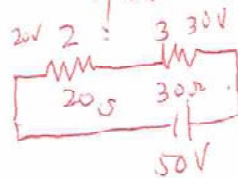 20V 2 : 3 30V
20Ω 30Ω
50V